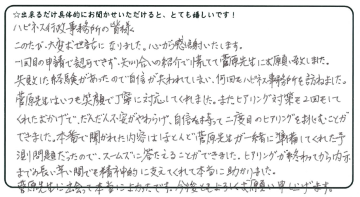 ☆出来るだけ具体的にお聞かせいただけると、とても嬉しいです！
ハピネス行政事務所の皆様
このたび、大変お世話になりました。心から感謝いたします。
一回目の申請で認可できず、知り合いの紹介で慌てて菅原先生にお願い致しました。
失敗した経験があったので自信が失われてしまい、何回もハピネス事務所を訪ねました。
菅原先生はいつも笑顔で丁寧に対応してくれました。またヒアリング対策を2回もして
くれたおかげで、だんだん不安がやわらげ、自信を持って二度目のヒアリングを対応することが
できました。本番で聞かれた内容はほとんど菅原先生が一緒に準備してくれた予
想問題だったので、スムーズに答えることができました。ヒアリングが終わってから内示
まで長い間でも精神的に支えてくれて本当に助かりました。
菅原先生に出会って本当によかったです。今後ともよろしくお願い申し上げます。